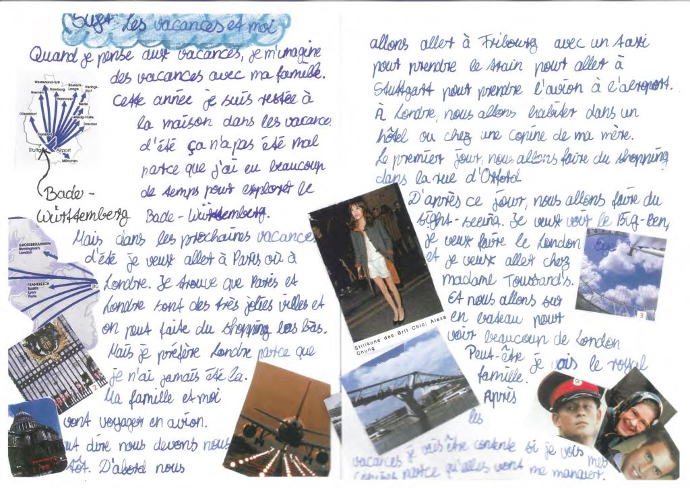 Sujet Les vacances et moi
Quand je pense aux vacances, je m'imagine
des vacances avec ma famille.
Cette année je suis restée à
la maison dans les vacances
d'été ça n'a pas été mal
parce que j'ai eu beaucoup
de temps pour explorer le
Bade-Würtemberg.
Bade-
Würtemberg
Stuttgart
Airport
Mais dans les prochaines vacances
d'été je veux aller à Paris ou à
Londre. Je trouve que Paris et
Londre sont des très jolies villes et
on peut faire du shopping las bas.
Mais je préfère Londre parce que
je n'ai jamais été la.
Ma famille et moi
vont voyager en avion.
dire nous devons nous
tôt. D'abord nous
allons aller à Fribourg avec un taxi
pour prendre le train pour aller à
Stuttgart pour prendre l'avion à l'aéroport.
À Londre, nous allons habiter dans un
hôtel ou chez une copine de ma mère.
Le premier jour, nous allons faire du shopping
dans la rue d'Oxford
D'après ce jour, nous allons faire du
sight-seeing. Je veux voir le Big-Ben,
je veux faire le London
Eye
et je veux aller chez
madame Toussand's.
Et nous allons sur
en bateau pour
voir beaucoup de London
Peut-être je vois le royal
famille.
Après
les
vacances je vais être contente si je vois mes
copines parce qu'elles vont me manquer.
Stilikone des Brit Chic: Alexa
Chung
3